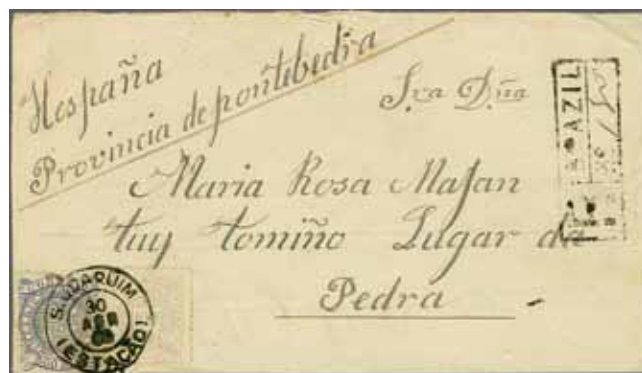 Hespaña
Provincia de pontebedra
Sra Dña
Maria Rosa Majan
tuy tomiño Lugar da
Pedra
AZIL
S. JOAQUIM
30
ABR
(ESTAÇÃO)